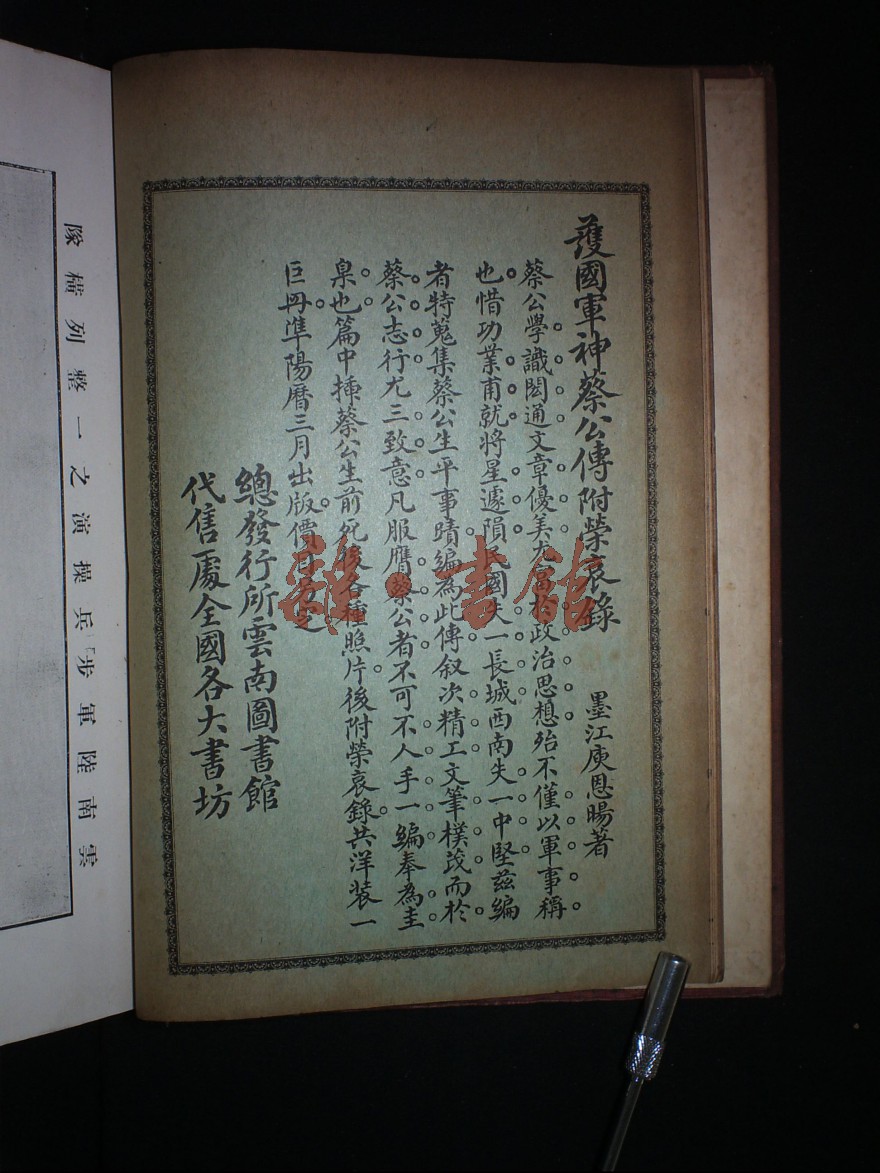 護國軍神蔡公傳附榮哀錄　墨江庾恩暘著
蔡公學識閎通文章優美尤富於政治思想殆不僅以軍事稱
也惜功業甫就將星遽隕民國失一長城西南失一中堅茲編
者特蒐集蔡公生平事蹟編為此傳叙次精工文筆樸茂而於
蔡公志行尤三致意凡服膺蔡公者不可不人手一編奉為圭
臬也篇中揷蔡公生前死後各種照片後附榮哀錄共洋装一
巨冊準陽曆三月出版價目另定
總發行所雲南圖書館
代售處全國各大書坊
雲南陸軍步兵操演之一整列橫隊
雜·書館